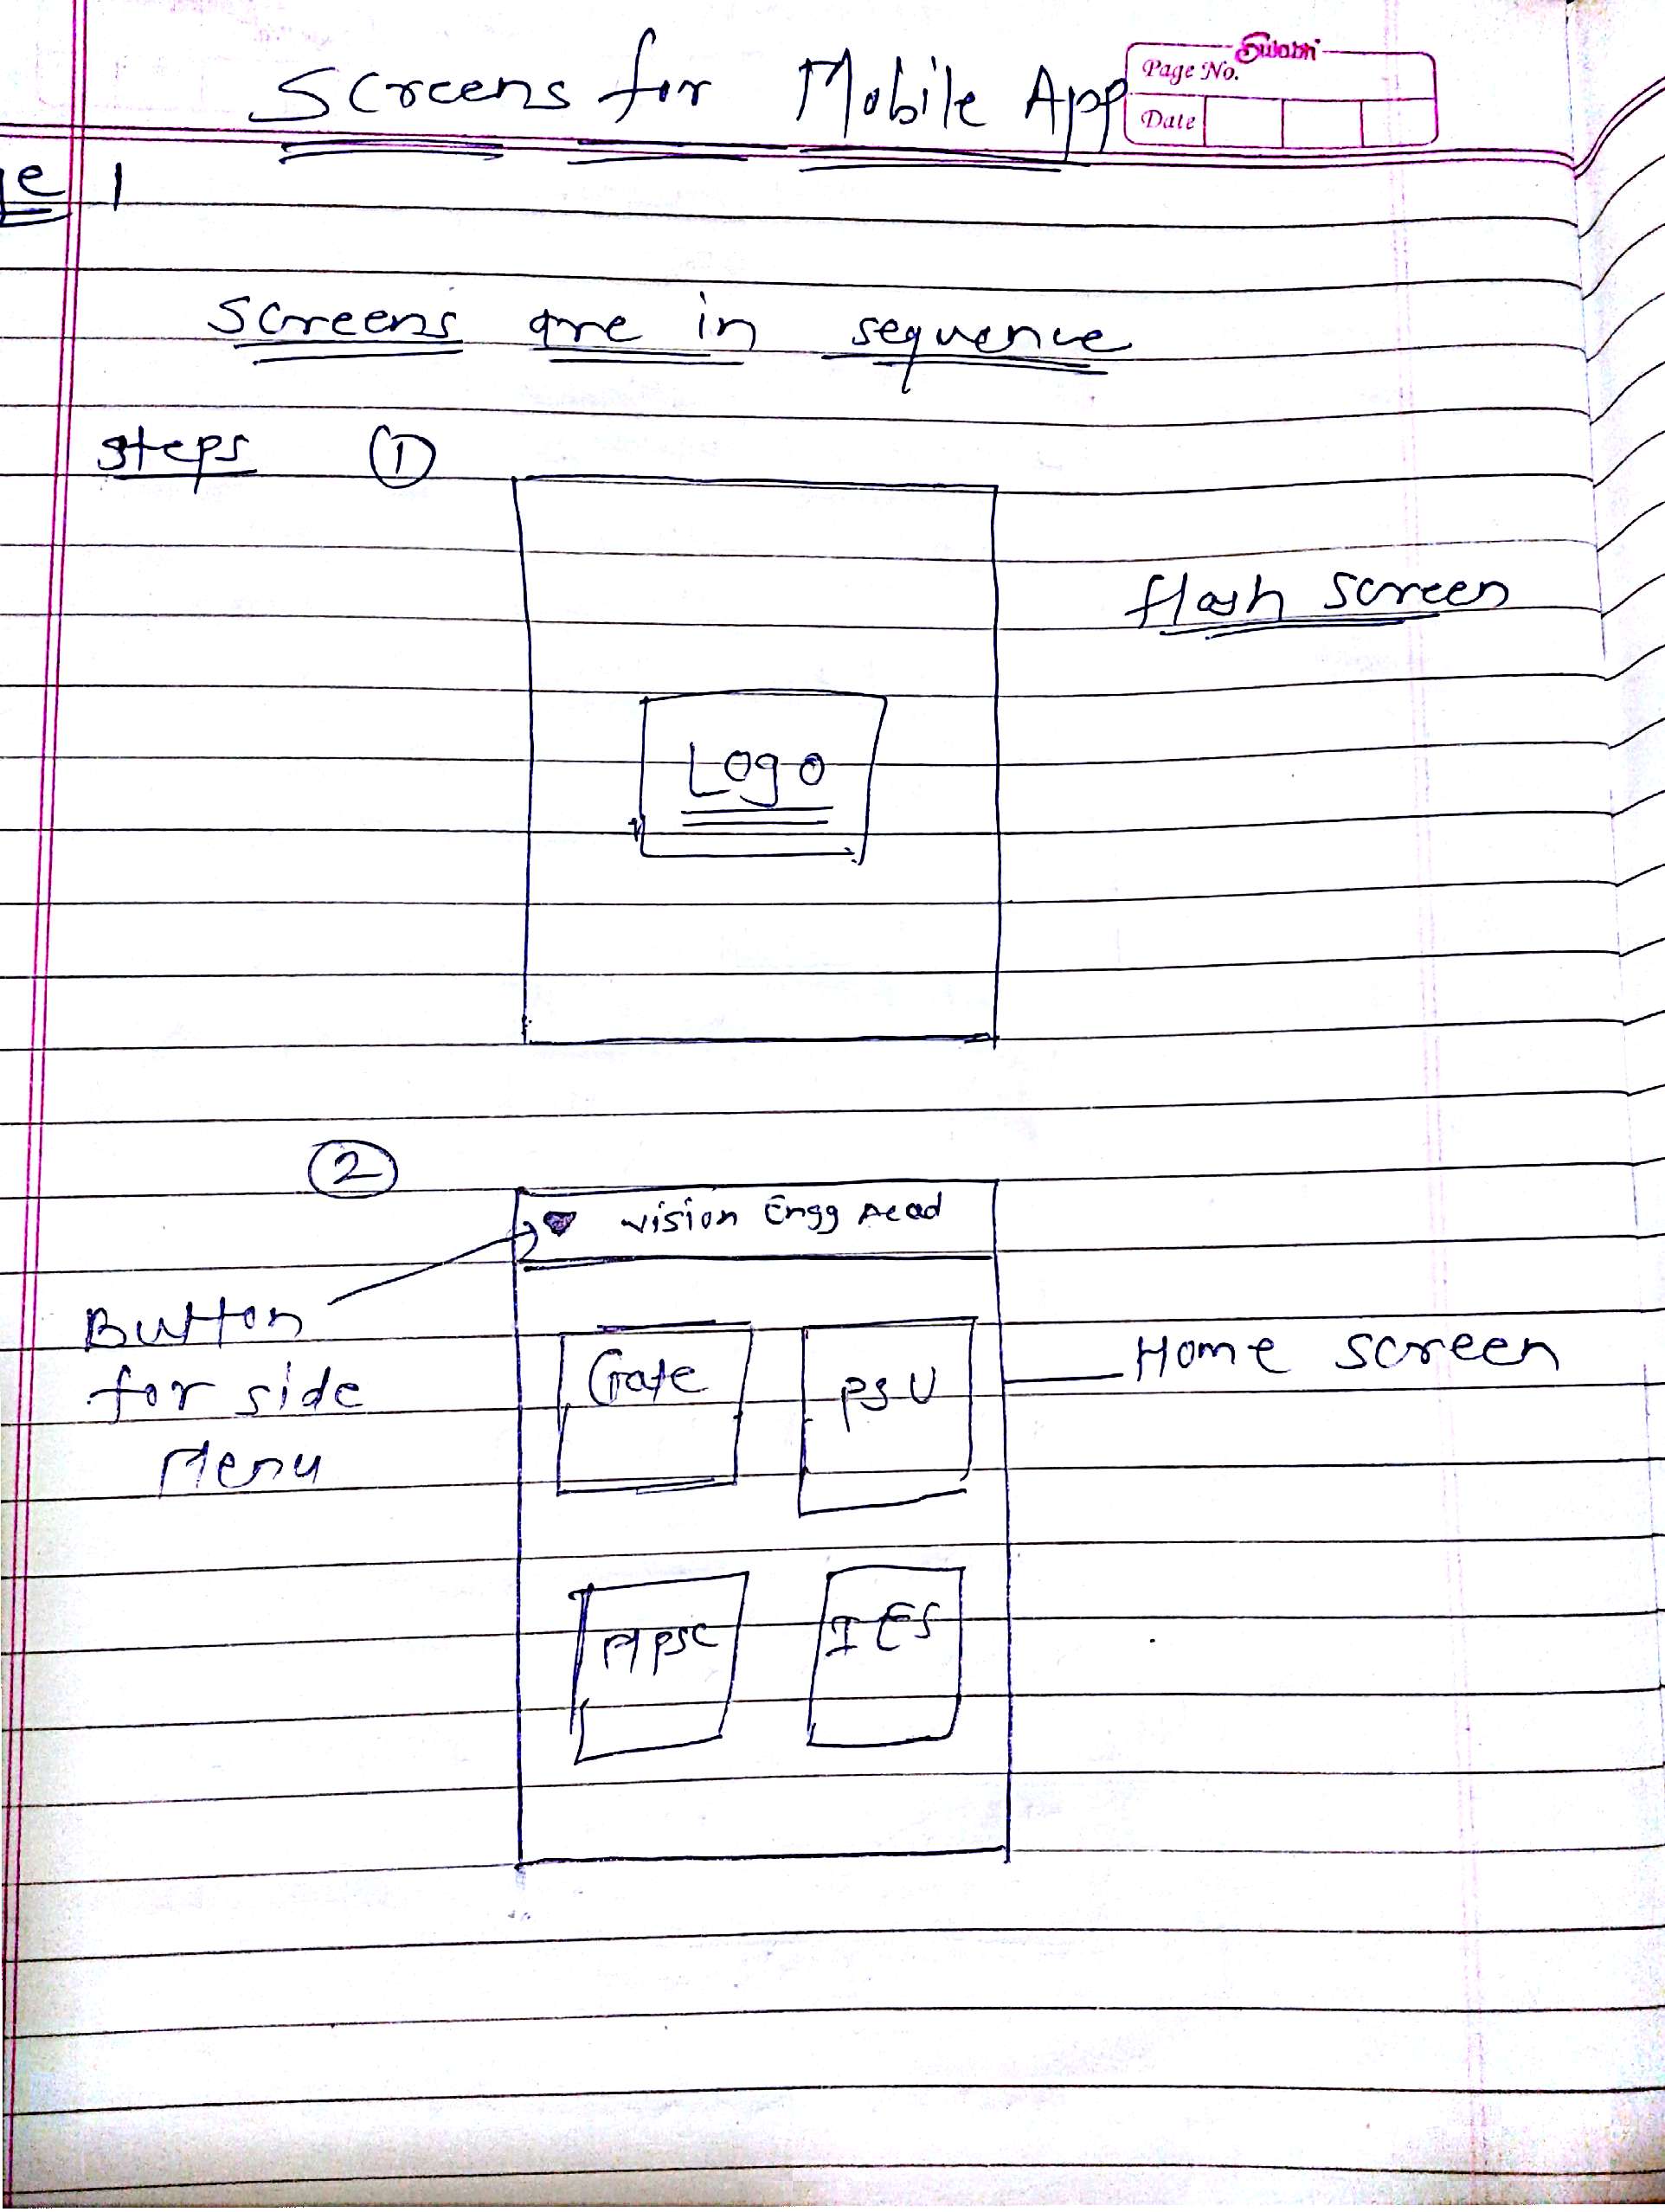 Screens for Mobile App
Swabhi
Page No.
Date
ge 1
Screens are in sequence
steps 1
flash screen
Logo
2
vision Engg Acad
Button
for side
Menu
Gate
PSU
Home screen
MPSC
IES